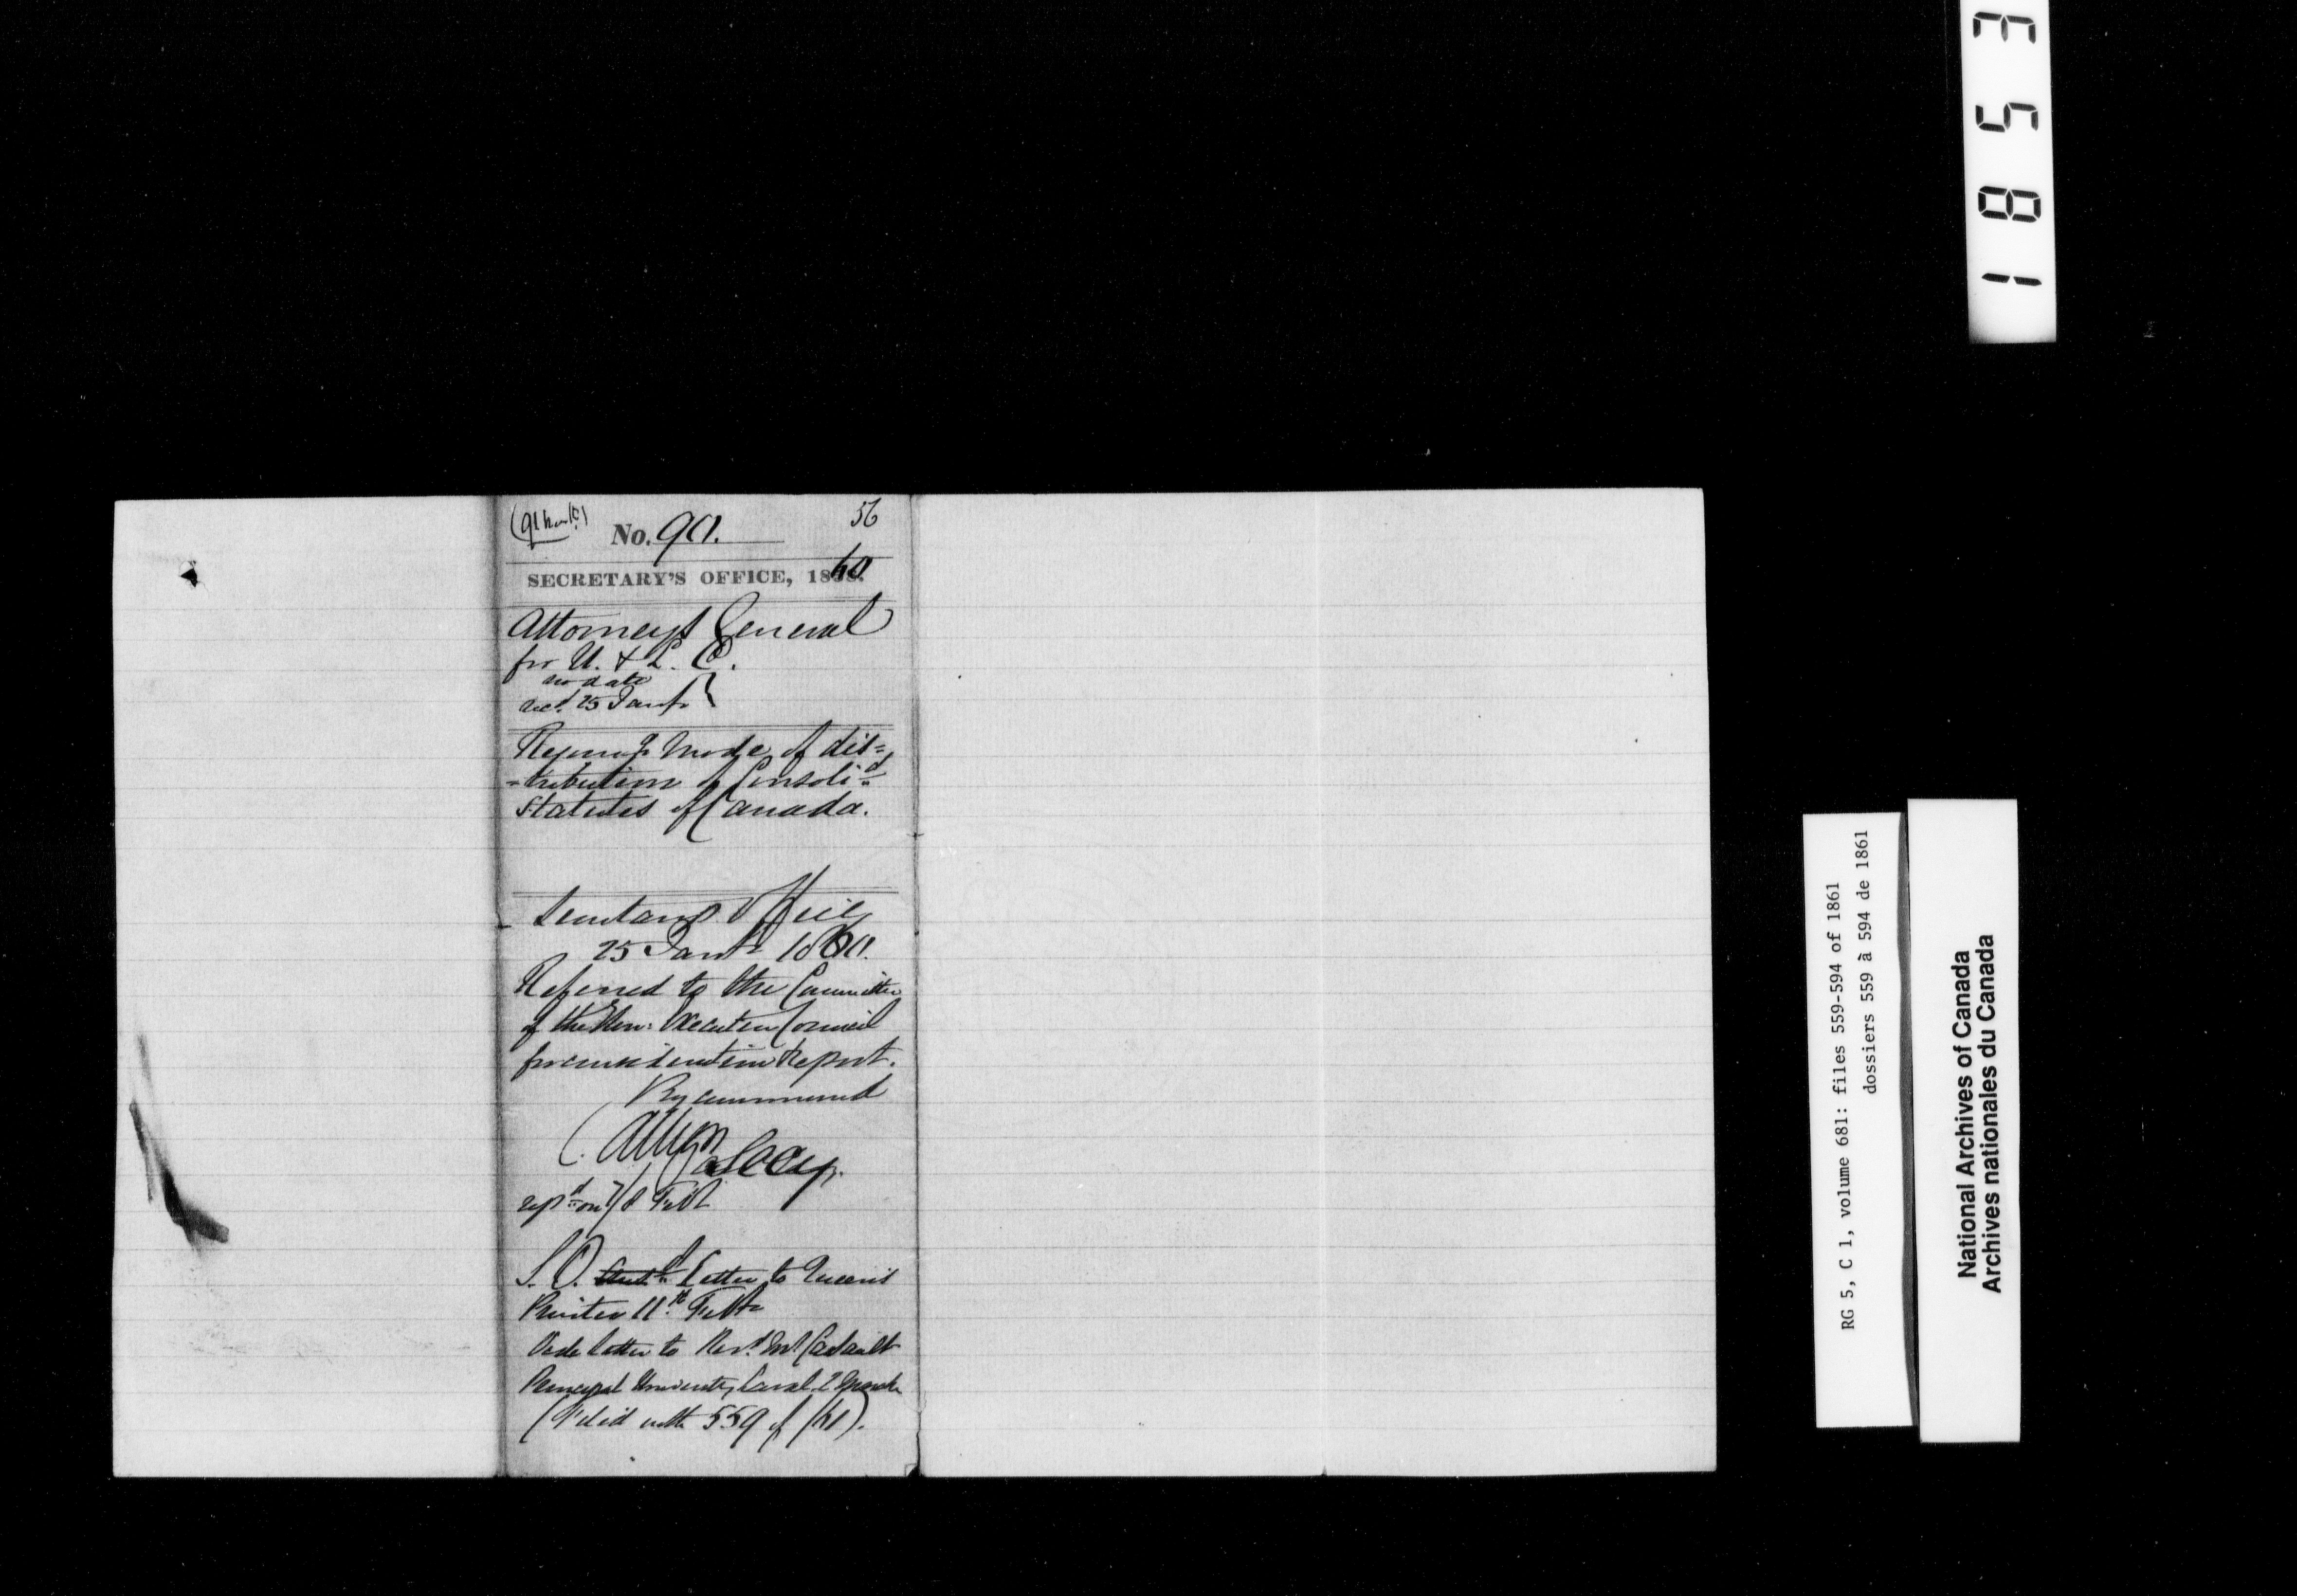 56
No. 90.
SECRETARY'S OFFICE, 1860
Attorneys General
for U. & L. C.
no date
recd. 25 Jany
mode of dis=
=tribution of Consolid
Statutes of Canada.
Secretary's Office
25 Jany 1860.
Referred to the Committee
of the Hon: Executive Council
for consideration & Report.
By command
C. Alleyn
Secy.
repd on 8 Feby
S. O. Letter to Queen's
Printer 11th Feby
Vide letter to Revd. Mr Casault
Principal University Laval
(Filed with 559 of /61).
1853
RG 5, C 1, volume 681: files 559-594 of 1861
dossiers 559 à 594 de 1861
National Archives of Canada
Archives nationales du Canada